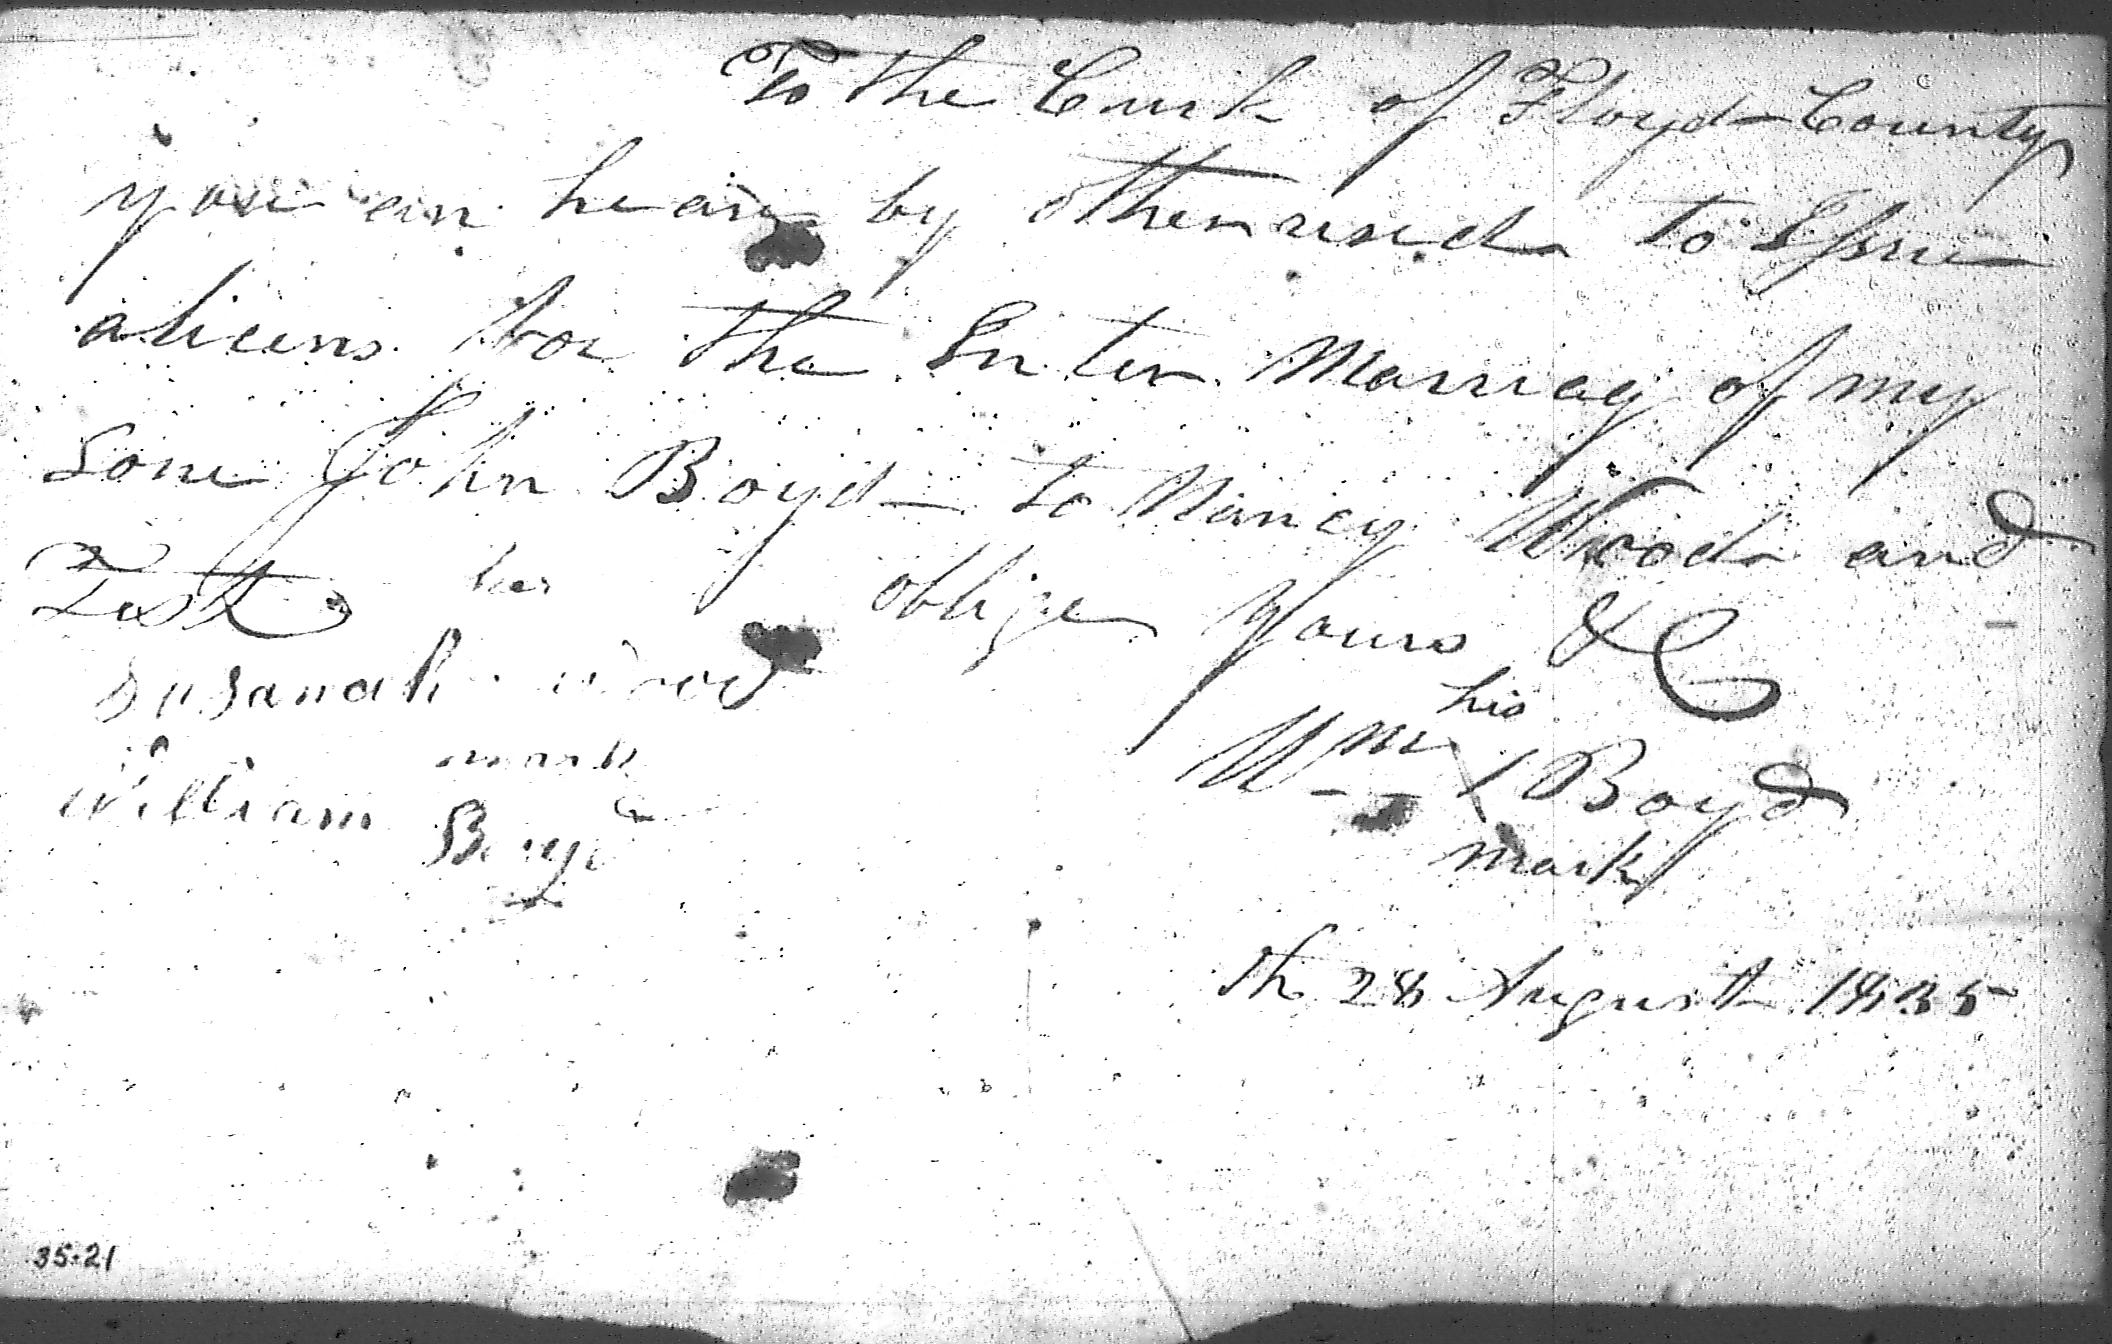 To the Curk of Floyd County
you ar hear by otherised to Issue
a licens for the Inter Marriag of my
Sone John Boyd to Nancy Wood and
oblige yours &C
Test
her
Susanah wood
mark
William Boyd
his
Wm X Boyd
mark
th 28 August 1835
35-21